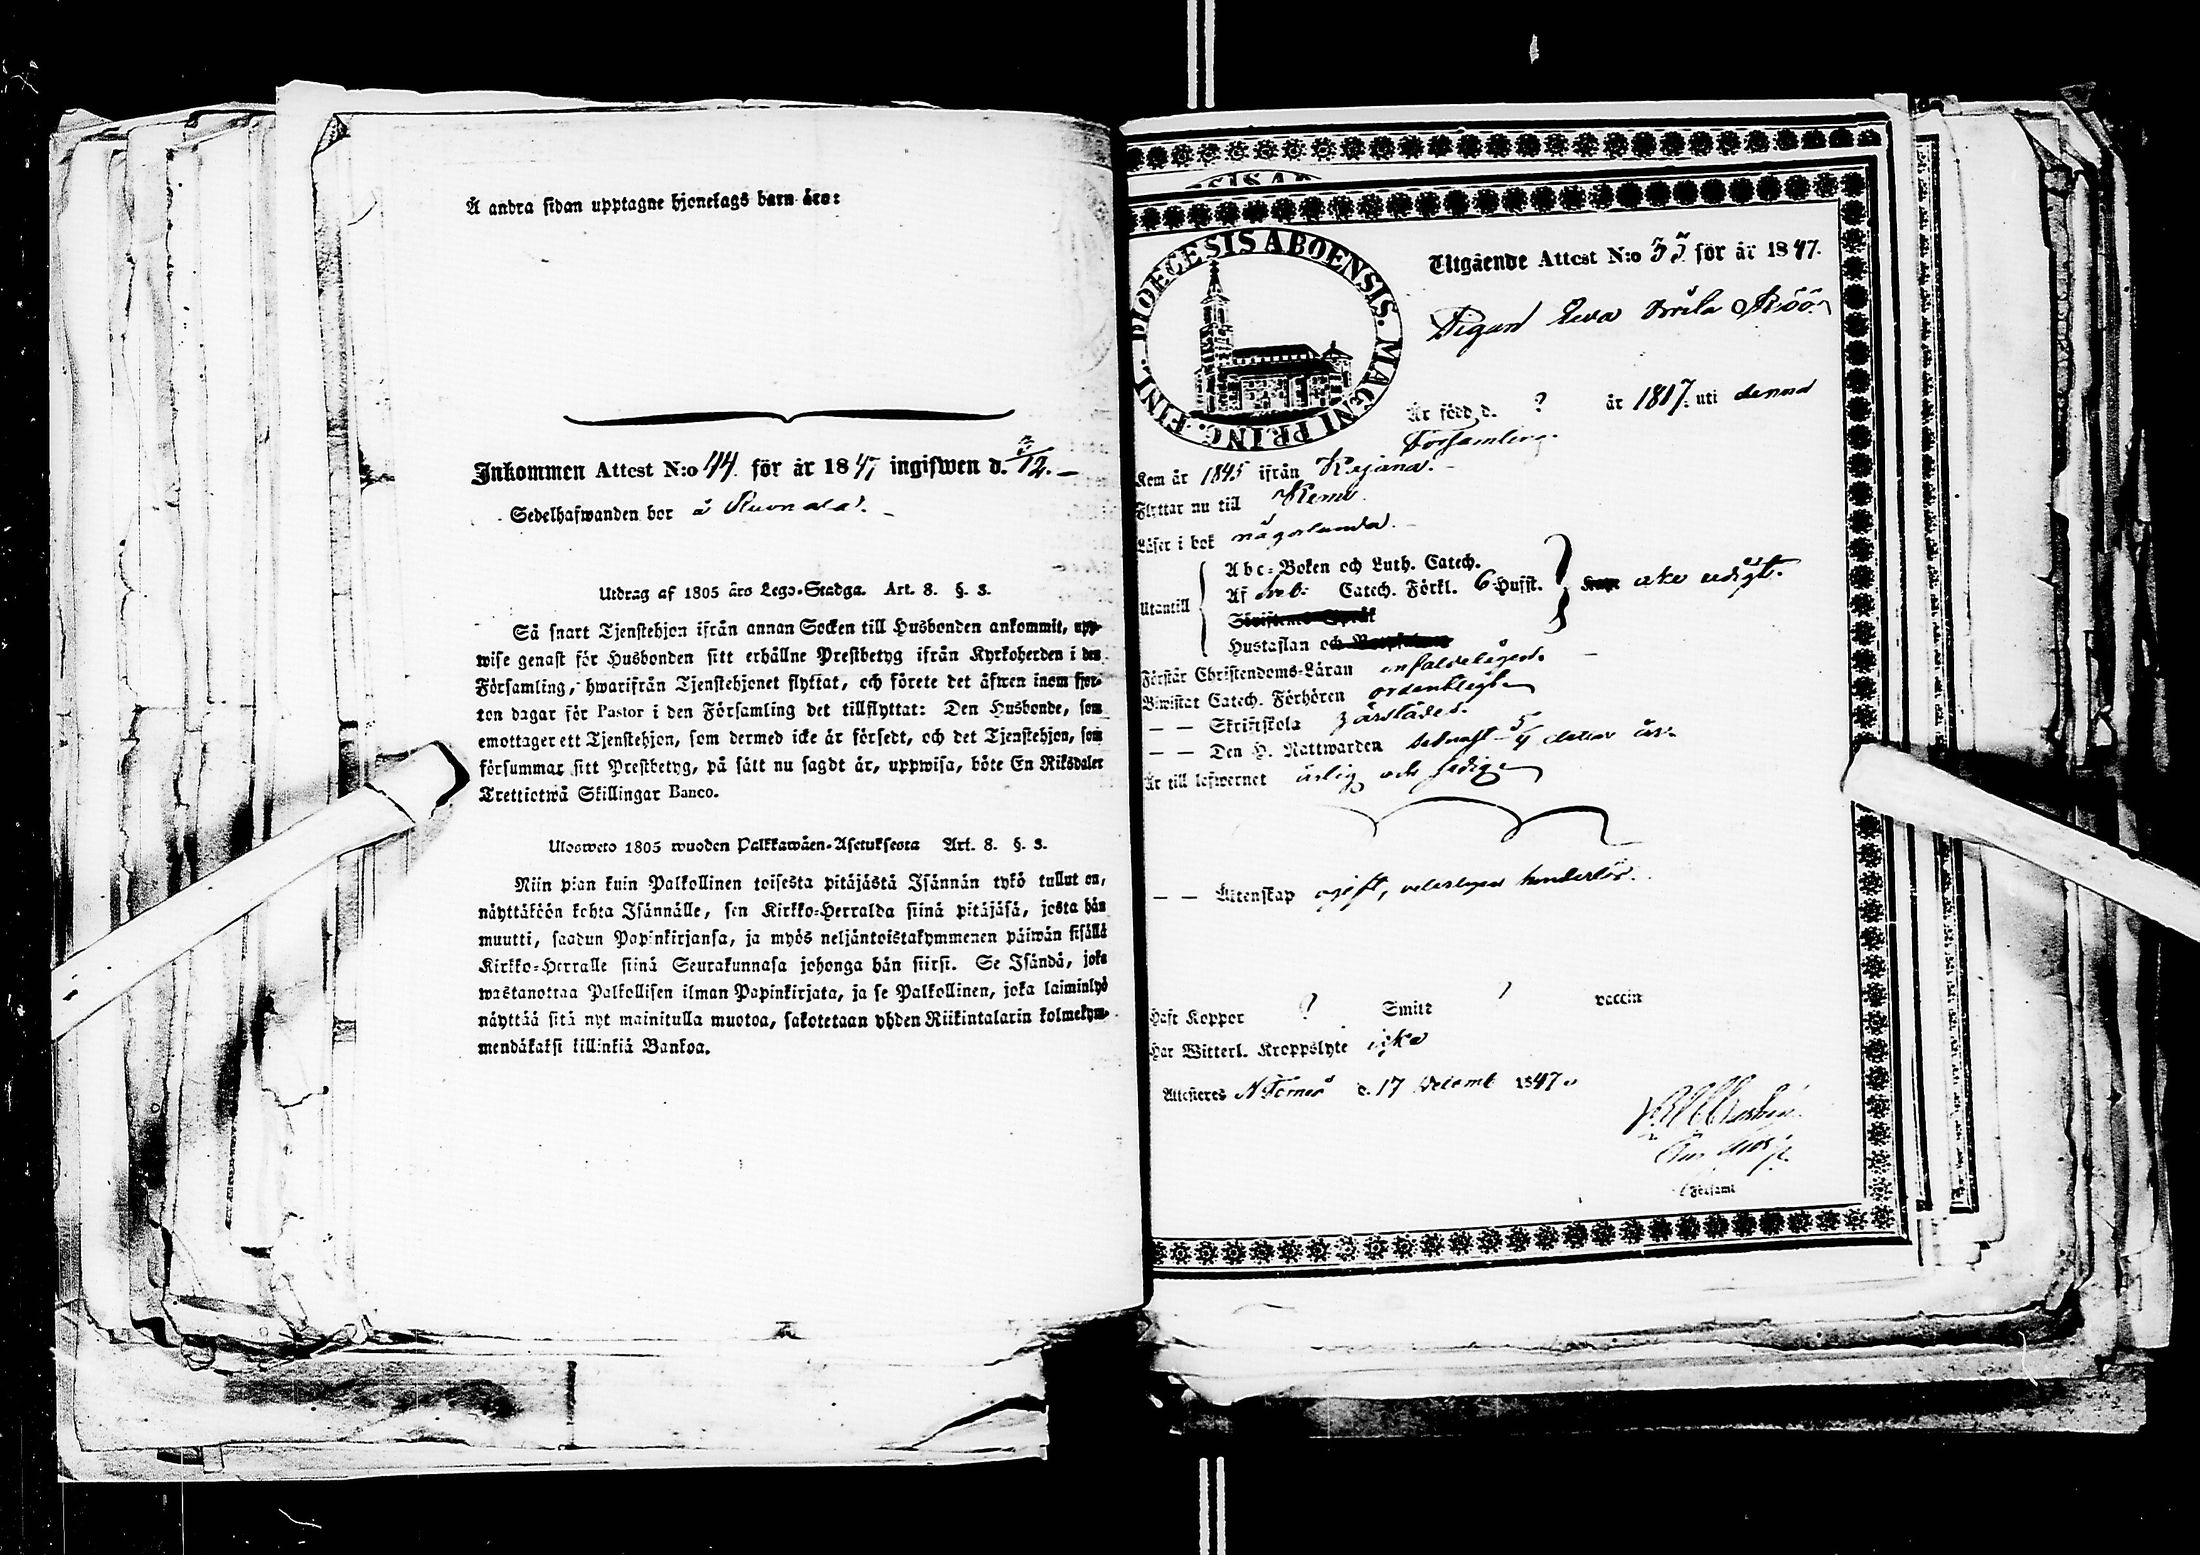 Å andra sidan upptagne hjonelags barn äro:
Inkommen Attest N:o 44. för år 1847 ingifwen d. /12. –
Sedelhafwanden bor å
Utdrag af 1805 års Lego-Stadga. Art. 8. §. 3.
Så snart Tjenstehjon ifrån annan Socken till Husbonden ankommit, upp-
wise genast för Husbonden sitt erhållne Prestbetyg ifrån Kyrkoherden i den
Församling, hwarifrån Tjenstehjonet flyttat, och förete det äfwen inom fjor-
ton dagar för Pastor i den Församling det tillflyttat: Den Husbonde, som
emottager ett Tjenstehjon, som dermed icke är försedt, och det Tjenstehjon, som
försummar sitt Prestbetyg, på sätt nu sagdt är, uppwisa, böte En Riksdaler
Trettiotwå Skillingar Banco.
Ulosweto 1805 wuoden Palkkawäen-Asetuksesta Art. 8. §. 3.
Niin pian kuin Palkollinen toisesta pitäjästä Isännän tykö tullut on,
näyttäköön kohta Isännälle, sen Kirkko-Herralda siinä pitäjäsä, josta hän
muutti, saadun Papinkirjansa, ja myös neljäntoistakymmenen päiwän sisällä
Kirkko-Herralle siinä Seurakunnasa johonga hän siirst. Se Isändä, joka
wastanottaa Palkollisen ilman Papinkirjata, ja se Palkollinen, joka laiminlyö
näyttää sitä nyt mainitulla muotoa, sakotetaan yhden Riikintalarin kolmekym-
mendäkaksi killinkiä Bankoa.
DIOECESIS ABOENSIS. MAGNI PRINC. FINL.
Utgående Attest N:o 35 för år 1847.
Pigan Ewa Brita
Är född d. ? år 1817. uti denna
Församling.
Kom år 1845 ifrån
Flyttar nu till Kemi
Läser i bok någorlunda. –
Abc-Boken och Luth. Catech.
Utantill Af Catech. Förkl. 6 Hufst.
Skriftenes Språk
Hustaflan och
Förstår Christendoms-Läran enfaldeligen. –
Biwistat Catech. Förhören ordentligt
– – Skriftskola
– – Den H. Nattwarden sednast 5/4 detta år.
Är till lefwernet ärlig och sedig
– – Äktenskap ogift, hinderlös.
Haft Koppor ? Smitt vaccin
Har Witterl. Kroppslyte icke
Attesteras N Torneå d. 17 Decemb 1847.
Församl